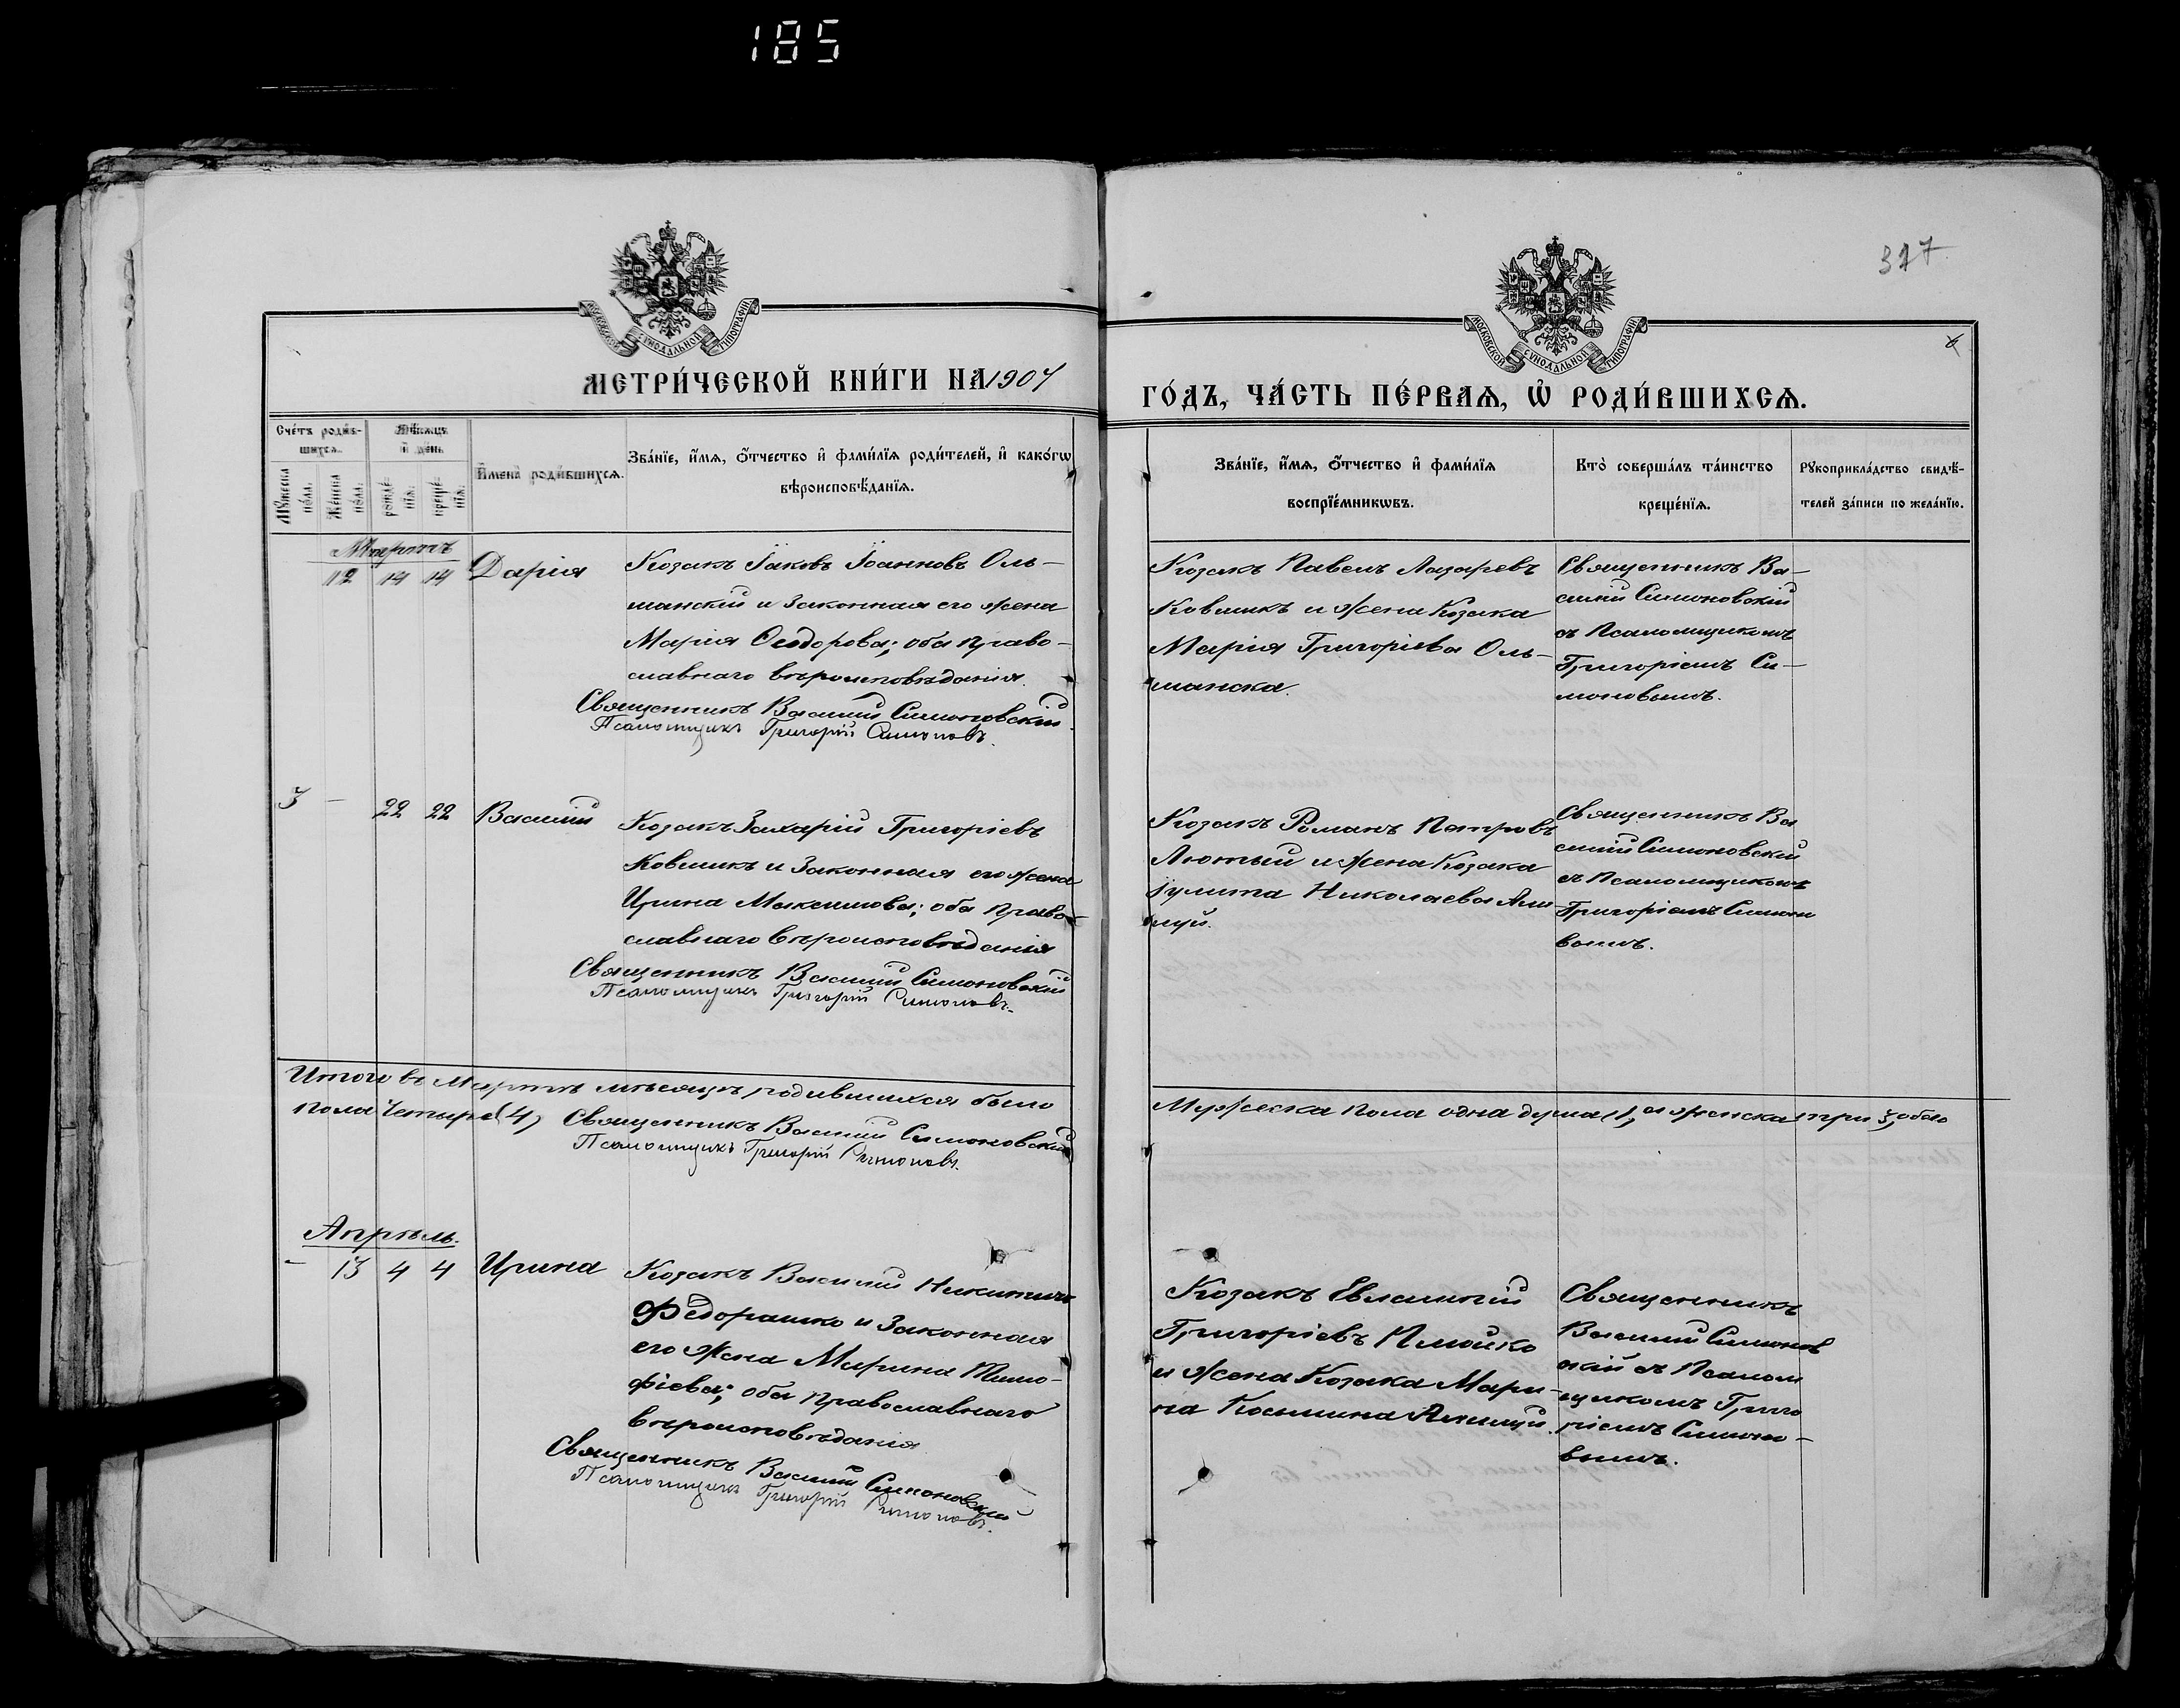 185
317
МОСКОВСКОЙ СѴНОДАЛЬНОЙ ТИПОГРАФІИ
МОСКОВСКОЙ СѴНОДАЛЬНОЙ ТИПОГРАФІИ
МЕТРИ́ЧЕСКОЙ КНИ́ГИ НА 1904
ГО́ДЪ, ЧА́СТЬ ПЕ́РВАѦ, Ѽ РОДИ́ВШИХСѦ.
Сче́тъ роди́в-
шихсѧ.
Мѣ́сѧцъ
и҆ де́нь
Мꙋ́жеска по́ла.
Же́нска по́ла.
рожде́-нїѧ.
креще́-нїѧ.
И҆мена̀ роди́вшихсѧ.
Зва́нїе, и҆́мѧ, ѻ҆́тчество и҆ фами́лїѧ роди́телей, и҆ како́гѡ
вѣроисповѣ́данїѧ.
Зва́нїе, и҆́мѧ, ѻ҆́тчество и҆ фами́лїѧ
воспрїе́мникѡвъ.
Кто̀ соверша́лъ та́инство
креще́нїѧ.
Рꙋкоприкла́дство свидѣ́-
телей за́писи по жела́нїю.
Мартъ
12 14 14 Дарія
Козакъ Іаковъ Іоанновъ Оль-
манскій и законная его жена
Марія Ѳеодорова; оба право-
славнаго вѣроисповѣданія.
Священникъ Василій Симоновскій
Псаломщикъ Григорій Симоновъ.
Козакъ Павелъ Лазаревъ
Ковшикъ и жена Козака
Марія Григоріева Оль-
манска.
Священникъ Ва-
силій Симоновскій
съ Псаломщикомъ
Григоріемъ Си-
моновымъ.
3 - 22 22 Василій
Козакъ Захарій Григоріевъ
Ковшикъ и законная его жена
Ирина Максимова; оба право-
славнаго вѣроисповѣданія
Священникъ Василій Симоновскій
Псаломщикъ Григорій Симоновъ.
Козакъ Романъ Петровъ
Лютый и жена Козака
Іулита Николаева
Священникъ Ва
силій Симоновскій
съ Псаломщикомъ
Григоріемъ Симоно
вымъ.
Итого въ Мартѣ мѣсяцѣ родившихся было
Мужеска пола одна душа (1, а женска три 3, обоо
пола Четыре (4)
Священникъ Василій Симоновскій
Псаломщикъ Григорій Симоновъ.
Апрѣль.
- 13 4 4 Ирина
Козакъ Василій Никитинъ
Федорашко и законная
его жена Марина Тимо-
фіева; оба православнаго
вѣроисповѣданія
Священникъ Василій Симоновскій
Псаломщикъ Григорій Симоновъ.
Козакъ Евлампій
Григоріевъ
и жена Козака Мари-
на Косьмина
Священникъ
Василій Симонов
скій съ Псалом
щикомъ Григо
ріемъ Симоно-
вымъ.